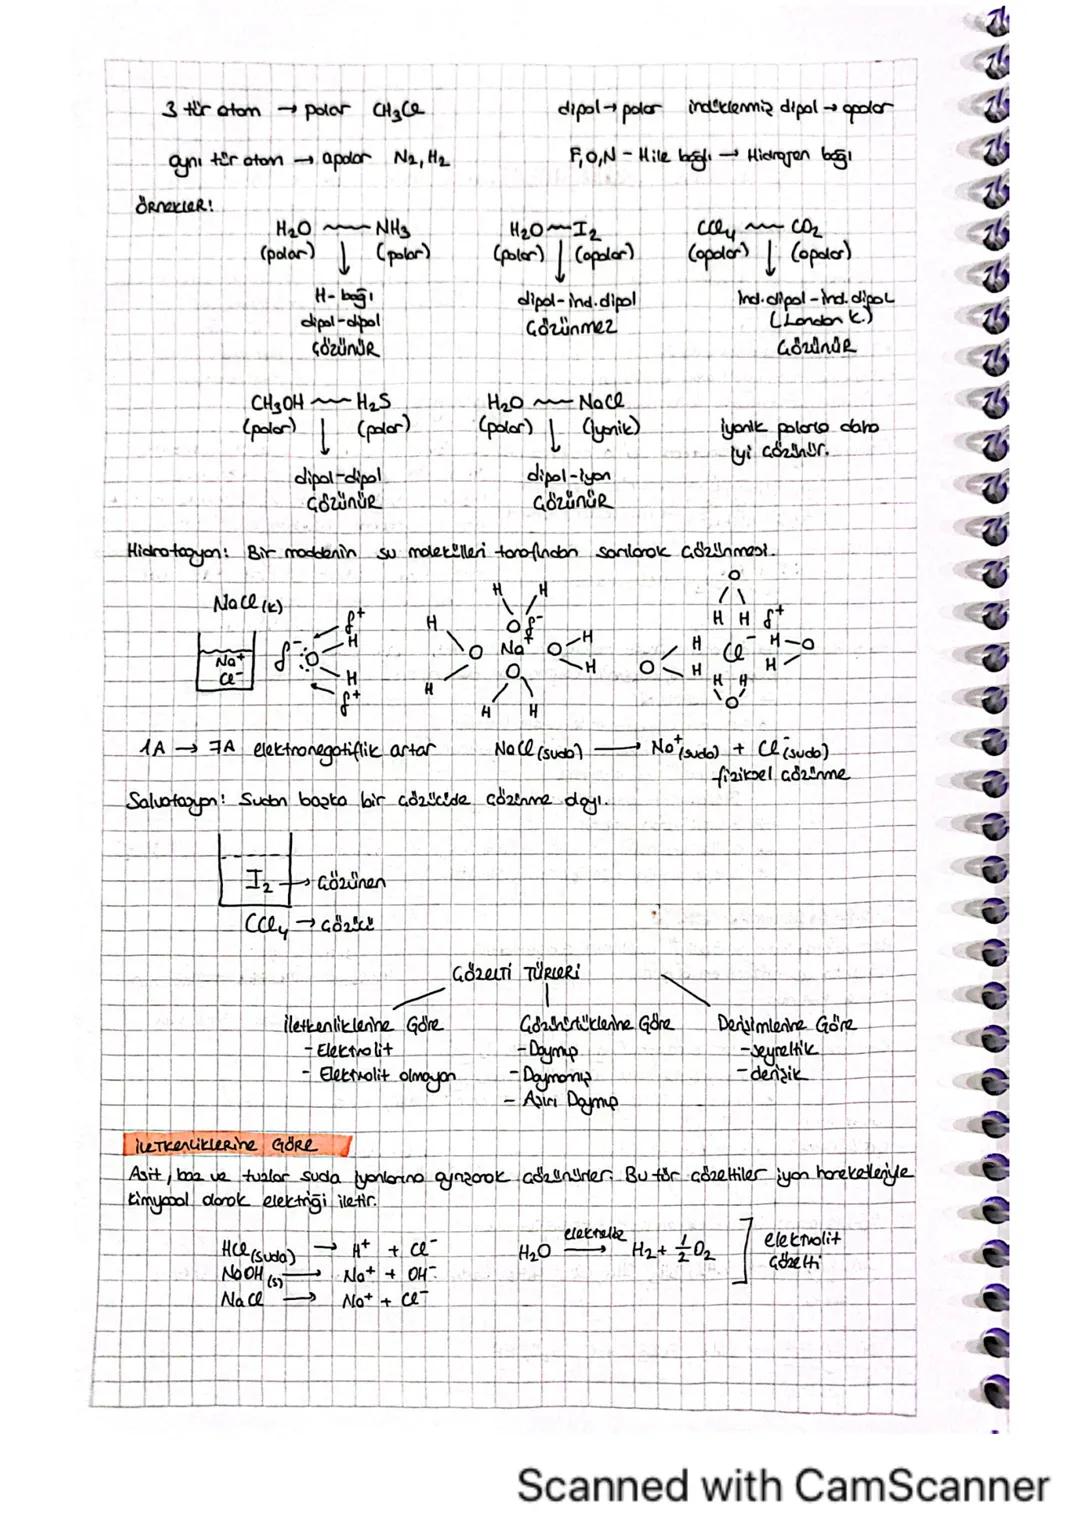 3 tür atom → polar CH3Cl
dipol → polar indüklenmiş dipol → apolar
aynı tür atom → apolar N2, H2
F, O, N - H ile bağlı → Hidrojen bağı
ÖRNEKLER:
H2O NH3
(polar) (polar)
H-bağı
dipol-dipol
ÇÖZÜNÜR
H2O I2
(polar) (apolar)
dipol-ind.dipol
Çözünmez
CCl4 CO2
(apolar) (apolar)
Ind.dipol-ind.dipol
(London k.)
ÇÖZÜNÜR
CH3OH H2S
(polar) (polar)
dipol-dipol
ÇÖZÜNÜR
H2O NaCl
(polar) (iyonik)
dipol-iyon
ÇÖZÜNÜR
iyonik polarla daha
iyi çözünür.
Hidratasyon: Bir maddenin su molekülleri tarafından sarılarak çözünmesi.
NaCl(k)
Na+
Cl-
δ- :O H δ+
H δ+
H H
H O δ- H
O Na+ O
H O H
H H
O
H H δ+
O H Cl- H O
H H
H H
O
1A → 7A elektronegatiflik artar
NaCl(suda) → Na+(suda) + Cl-(suda)
fiziksel çözünme
Salvatasyon: Sudan başka bir çözücüde çözünme olayı.
I2 → Çözünen
CCl4 → Çözücü
ÇÖZELTİ TÜRLERİ
İletkenliklerine Göre
- Elektrolit
- Elektrolit olmayan
Çözünürlüklerine Göre
- Doymuş
- Doymamış
- Aşırı Doymuş
Derişimlerine Göre
- seyreltik
- derişik
İLETKENLİKLERİNE GÖRE
Asit, baz ve tuzlar suda iyonlarına ayrışarak çözünürler. Bu tür çözeltiler iyon hareketleriyle
kimyasal olarak elektriği iletir.
HCl(suda) → H+ + Cl-
NaOH(s) → Na+ + OH-
NaCl → Na+ + Cl-
elektroliz
H2O → H2 + 1/2 O2
elektrolit
Çözelti
Scanned with CamScanner